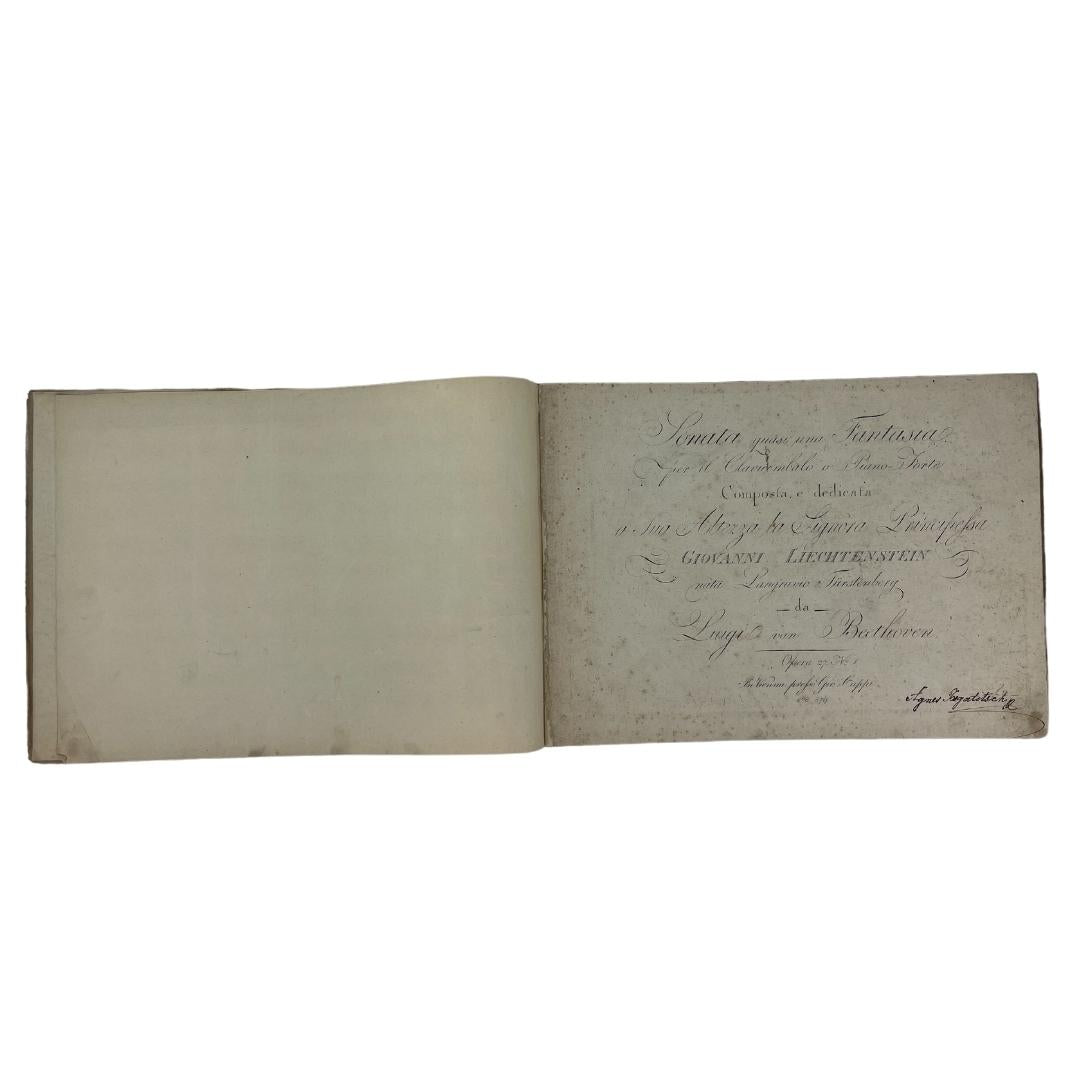 Sonata quasi una Fantasia
per il Clavicembalo o Piano-Forte
Composta, e dedicata
a Sua Altezza la Signora Principessa
GIOVANNI LIECHTENSTEIN
nata Langravio Fürstenberg
— da —
Luigi van Beethoven
Opera 27 No. 1
In Vienna presso Gio. Cappi
Agnes